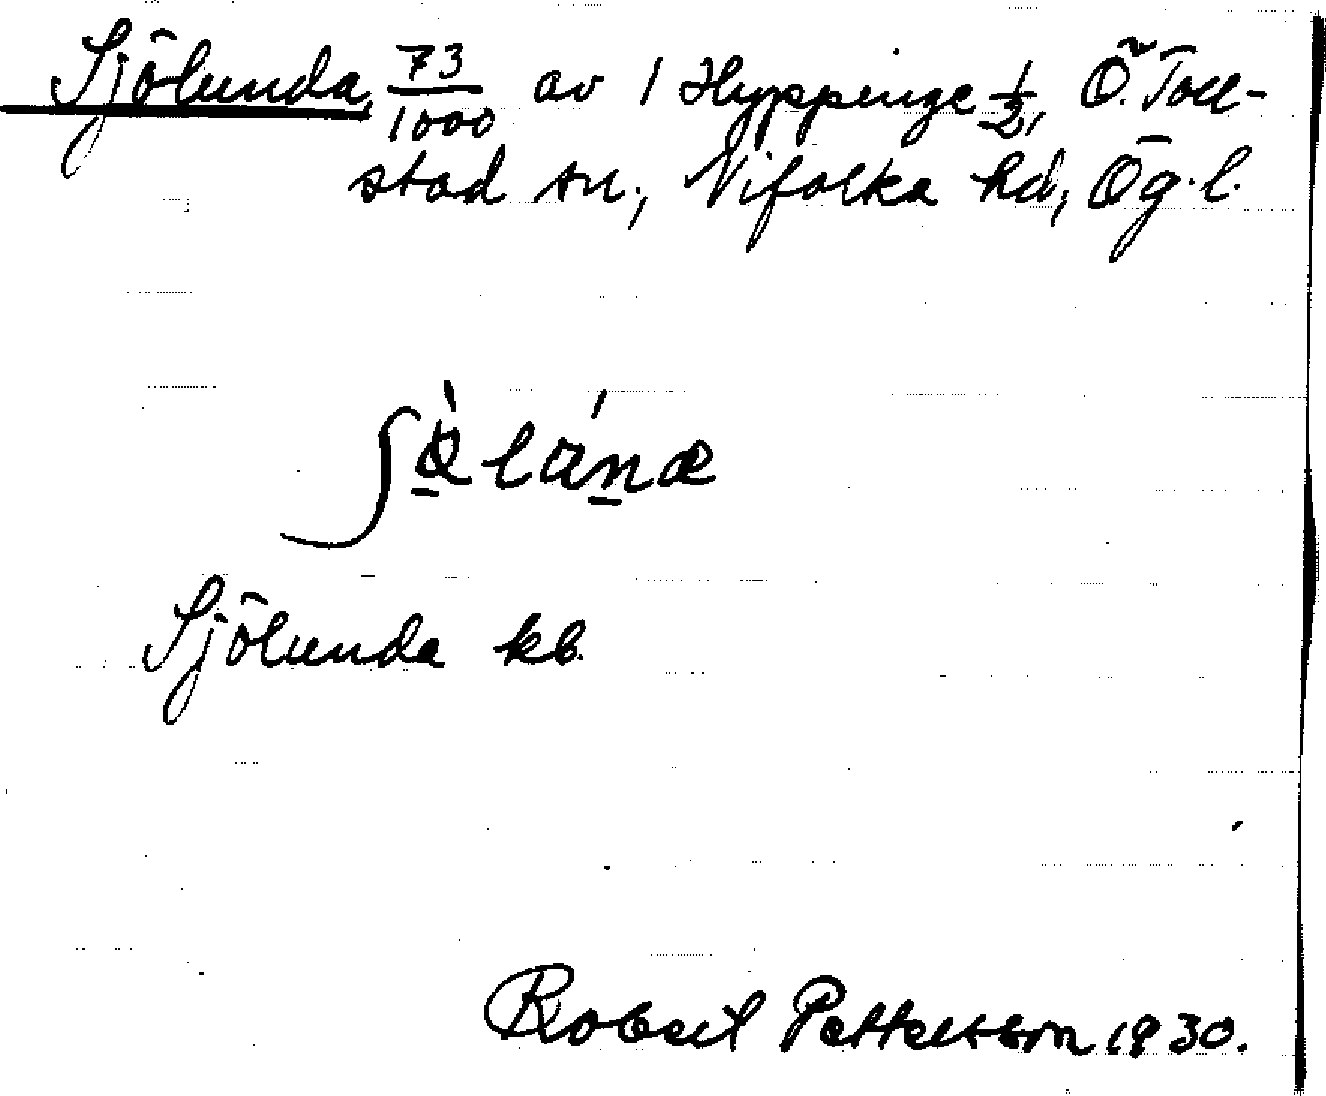 Sjölunda, 73/1000 av 1 Hyppinge 1/2, Ö. Toll-
stad sn., Vifolka hd, Ög. l.
Sjölunda kb.
Robert Pettersson 1930.